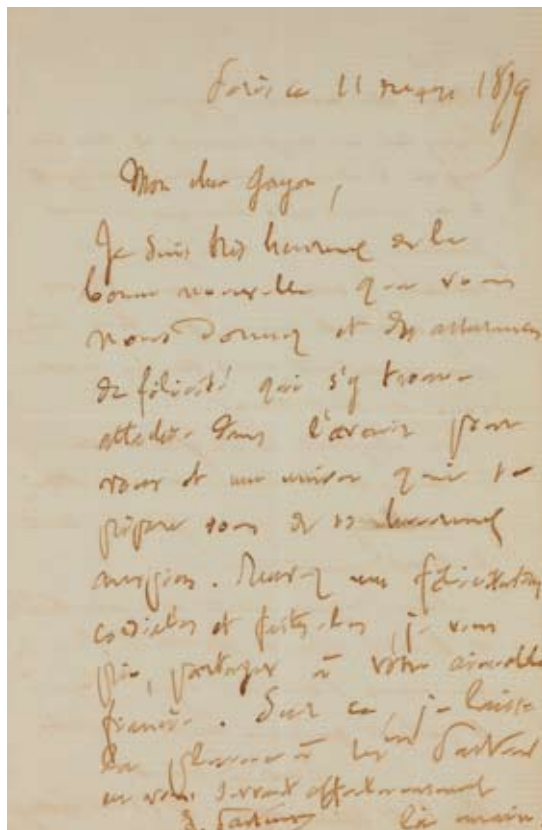 Paris ce 11 mars 1879
Mon cher Gayon,
Je suis très heureux de la
bonne nouvelle que vous
nous donnez et des assurances
de félicité qui s'y trouve
attachée dans l'avenir pour
vous et une union qui se
prépare sous de si heureux
auspices. Recevez mes félicitations
cordiales et faites-les, je vous
prie, partager à votre aimable
fiancée. Sur ce, je laisse
la plume à Mme Pasteur
en vous serrant affectueusement
L. Pasteur la main